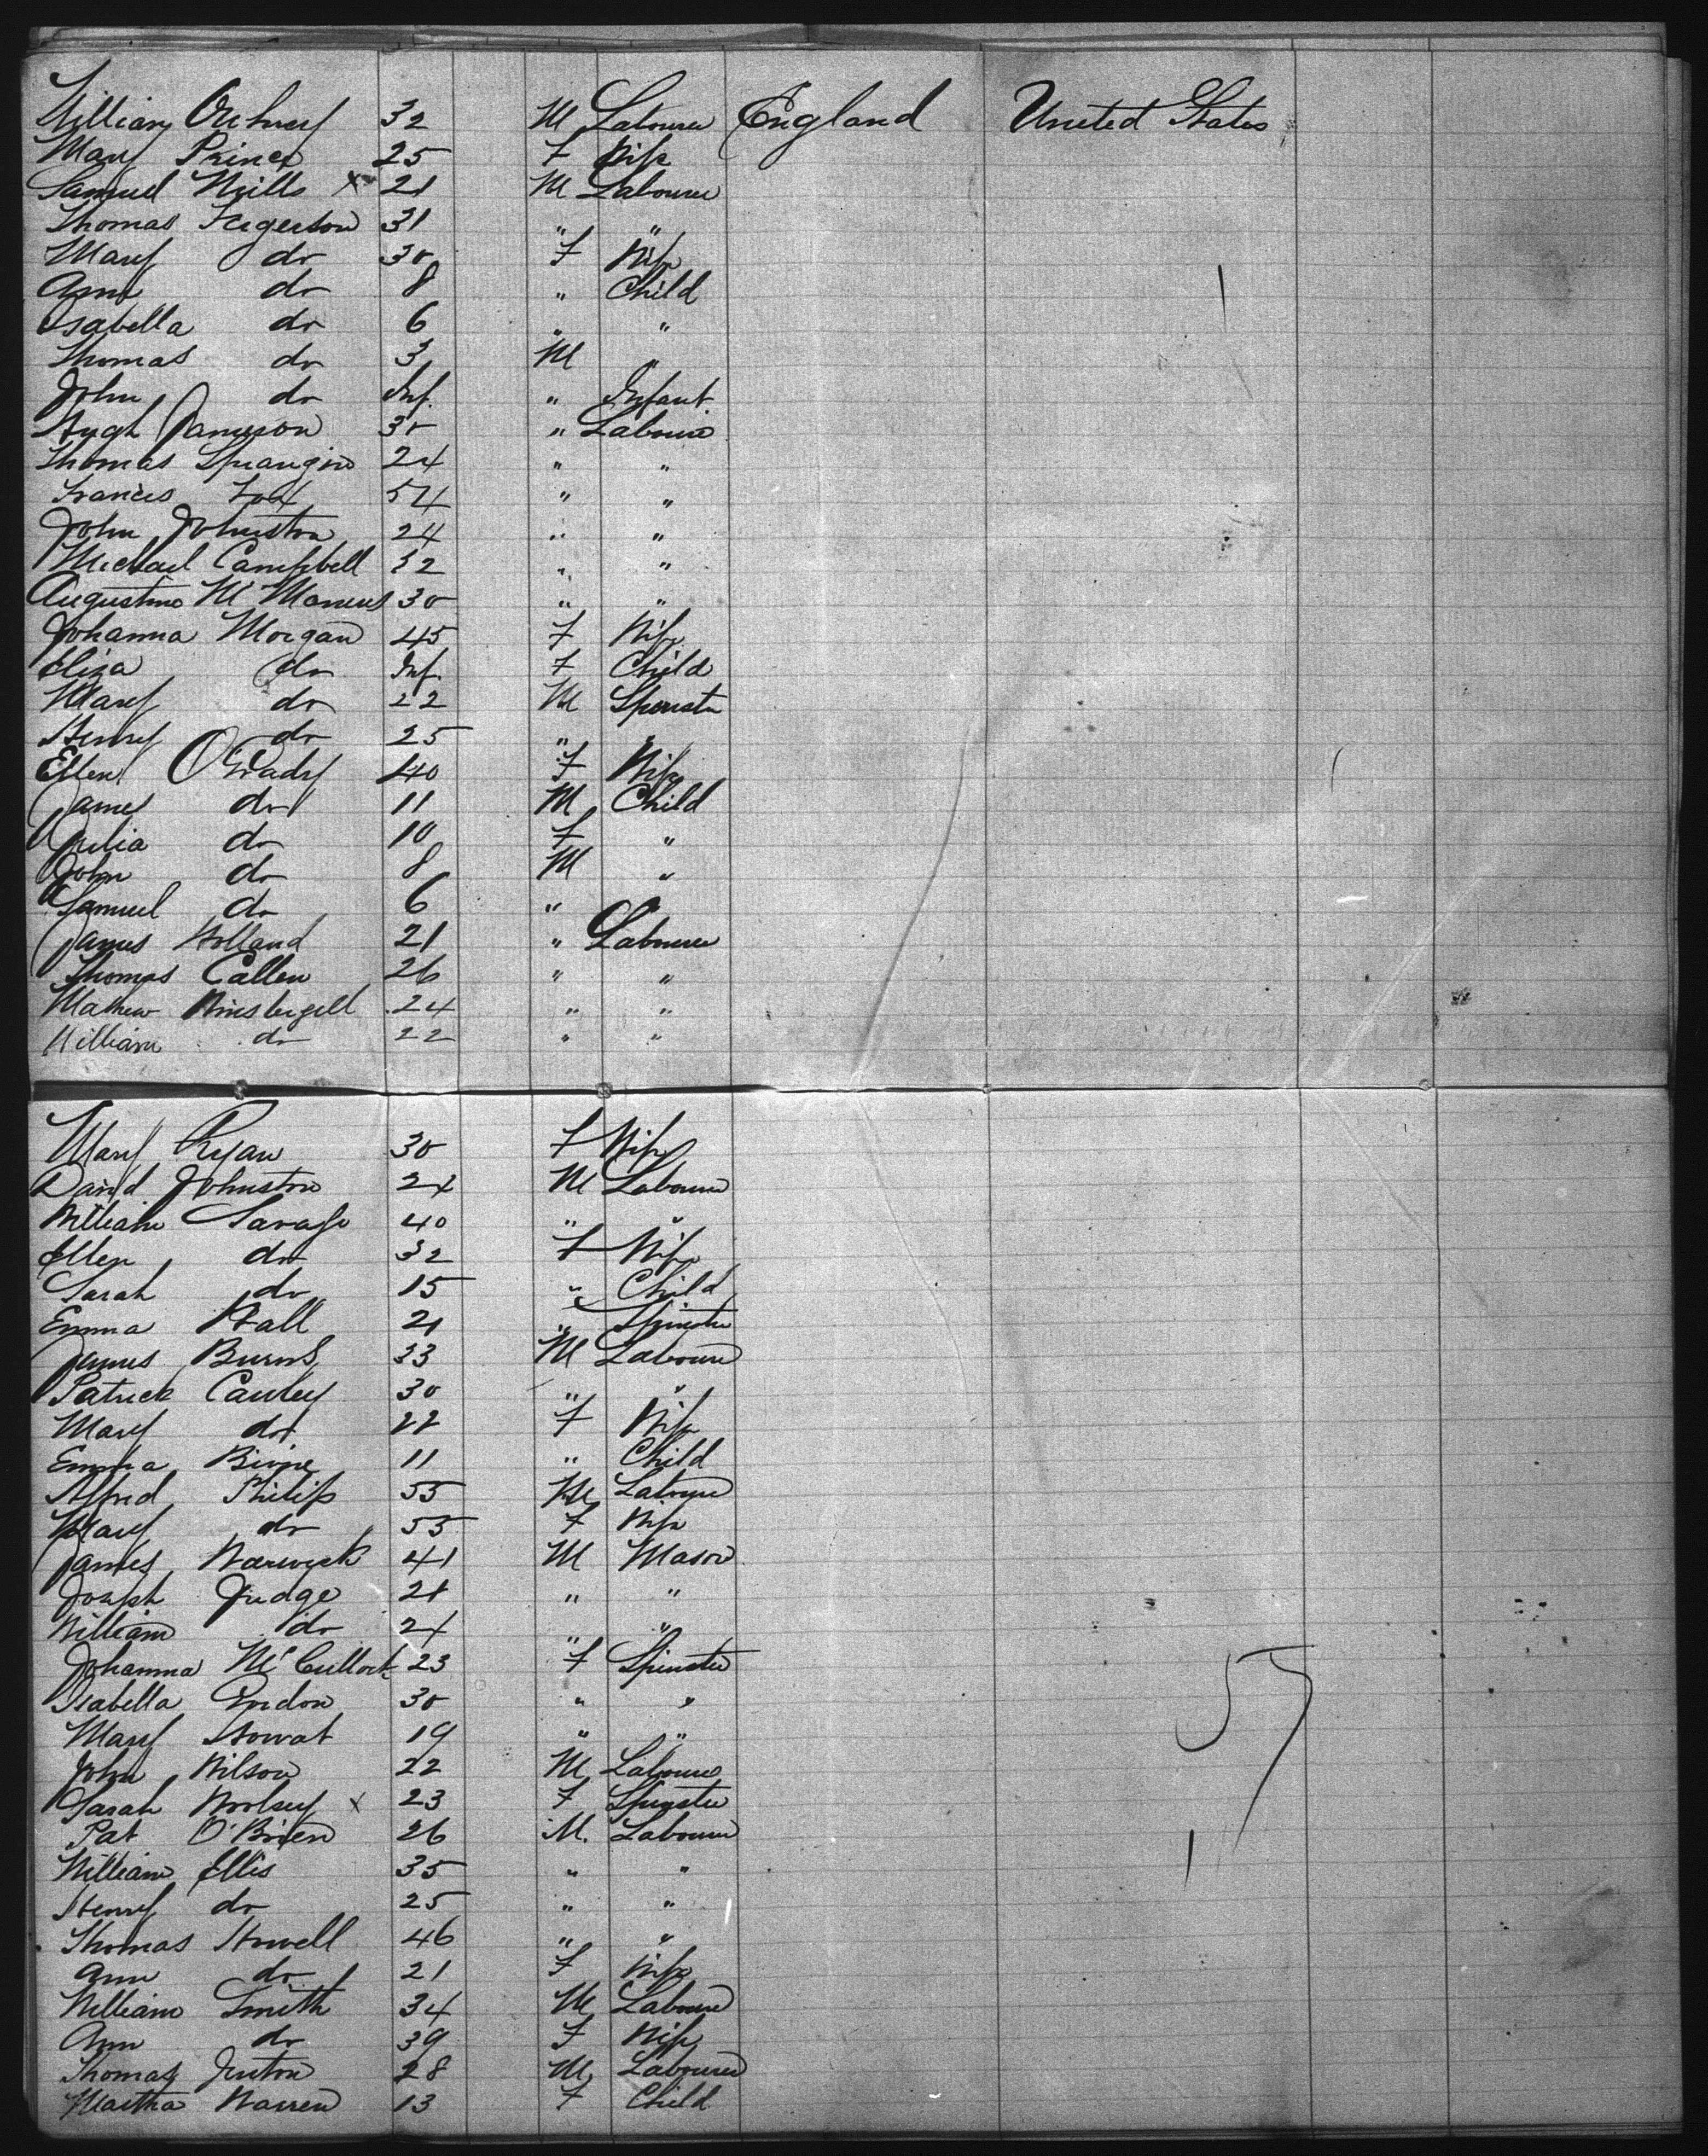 William 32 M Labourer England United States
Mary Prince 25 F Wife
Samuel Mills x 21 M Labourer
Thomas Fergerson 31 " "
Mary do 30 F Wife
Ann do 8 " Child
Isabella do 6 " "
Thomas do 3 M "
John do Inf. " Infant
Hugh Jameson 30 " Labourer
Thomas 24 " "
Frances 54 " "
John Johnston 24 " "
Michael Campbell 32 " "
Augustine 30 " "
Johanna Morgan 45 F Wife
Eliza do Inf. F Child
Mary do 22 M Spinster
Henry do 25 " "
Ellen O'Grady 40 F Wife
James do 11 M Child
Julia do 10 F "
John do 8 M "
Samuel do 6 " "
James Holland 21 " Labourer
Thomas Callen 26 " "
Mathew 24 " "
William do 22 " "
Mary Ryan 30 F Wife
David Johnston 24 M Labourer
William Savage 40 " "
Ellen do 32 F Wife
Sarah do 15 " Child
Emma Hall 21 " Spinster
James Burns 33 M Labourer
Patrick Cauley 30 " "
Mary do 22 F Wife
Emma 11 " Child
Alfred Philips 55 M Labourer
Mary do 55 F Wife
James Warwick 41 M Mason
Joseph Judge 21 " "
William do 24 " "
Johanna McCulloch 23 F Spinster
Isabella 30 " "
Mary Howat 19 " "
John Wilson 22 M Labourer
Sarah Woolsey x 23 F Spinster
Pat O'Brien 26 M. Labourer
William Ellis 35 " "
Henry do 25 " "
Thomas Howell 46 " "
Ann do 21 F Wife
William Smith 34 M Labourer
Ann do 39 F Wife
Thomas 28 M Labourer
Martha Warren 13 F Child
57